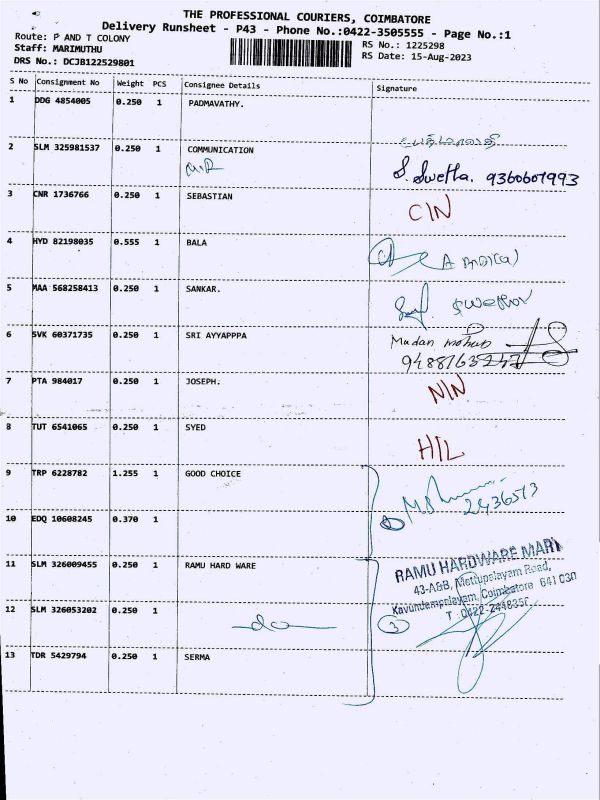 THE PROFESSIONAL COURIERS, COIMBATORE
Delivery Runsheet - P43 - Phone No.:0422-3505555 - Page No.:1
Route: P AND T COLONY
Staff: MARIMUTHU
DRS No.: DCJB122529801
RS No.: 1225298
RS Date: 15-Aug-2023
S No Consignment No Weight PCS Consignee Details Signature
1 DDG 4854005 0.250 1 PADMAVATHY.
2 SLM 325981537 0.250 1 COMMUNICATION
S. Swetha. 9360607993
3 CNR 1736766 0.250 1 SEBASTIAN
CIN
4 HYD 82198035 0.555 1 BALA
5 MAA 568258413 0.250 1 SANKAR.
6 SVK 60371735 0.250 1 SRI AYYAPPPA
Madan mohan
7 PTA 984017 0.250 1 JOSEPH.
NIN
8 TUT 6541065 0.250 1 SYED
HIL
9 TRP 6228782 1.255 1 GOOD CHOICE
2436573
10 EDQ 10608245 0.370 1
11 SLM 326009455 0.250 1 RAMU HARD WARE
RAMU HARDWARE MART
43-A&B, Mettupalayam Road,
Kavundampalayam, Coimbatore 641 030
12 SLM 326053202 0.250 1
do
3
13 TDR 5429794 0.250 1 SERMA